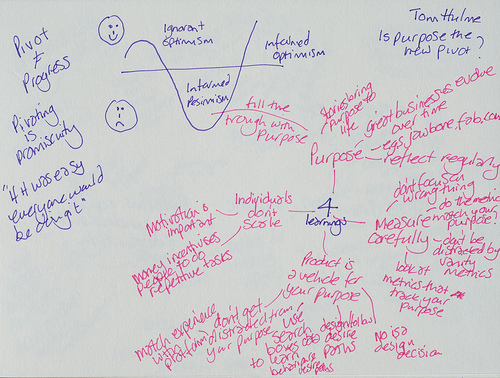 Tom Hulme
Is purpose the
new pivot?
Pivot
≠
Progress
Pivoting
is
promiscuity
"If it was easy
everyone would
be doing it"
Ignorant
optimism
Informed
Pessimism
Informed
optimism
fill the
trough with
purpose
4
learnings
Purpose
stories bring
purpose to
life
great businesses evolve
over time
egs jawbone, fab.com
reflect regularly
Measure
carefully
dont focus on
wrong thing
do the metrics
match your
purpose?
dont be
distracted by
vanity
metrics
look at
metrics that
track your
purpose
Product is
a vehicle for
your purpose
match experience
with
platform
don't get
distracted from
your purpose
use
search
boxes
to learn
behaviour
design follow
desire
paths
No is a
design
decision
Individuals
don't
scale
Motivation is
important
money incentivises
people to do
repetitive tasks